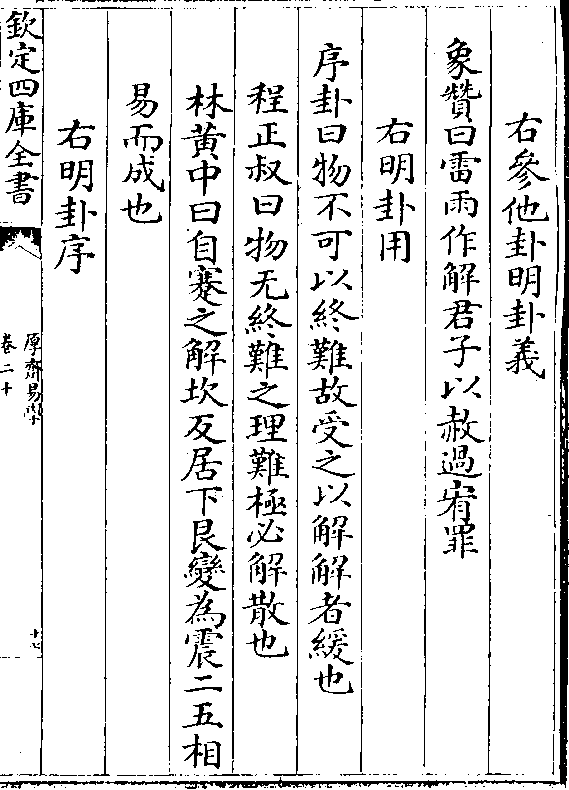 右參他卦明卦義
象贊曰雷雨作解君子以赦過宥罪
右明卦用
序卦曰物不可以終難故受之以解解者緩也
程正叔曰物无終難之理難極必解散也
林黃中曰自蹇之解坎反居下艮變為震二五相
易而成也
右明卦序
欽定四庫全書
厚齋易學
卷二十
十七